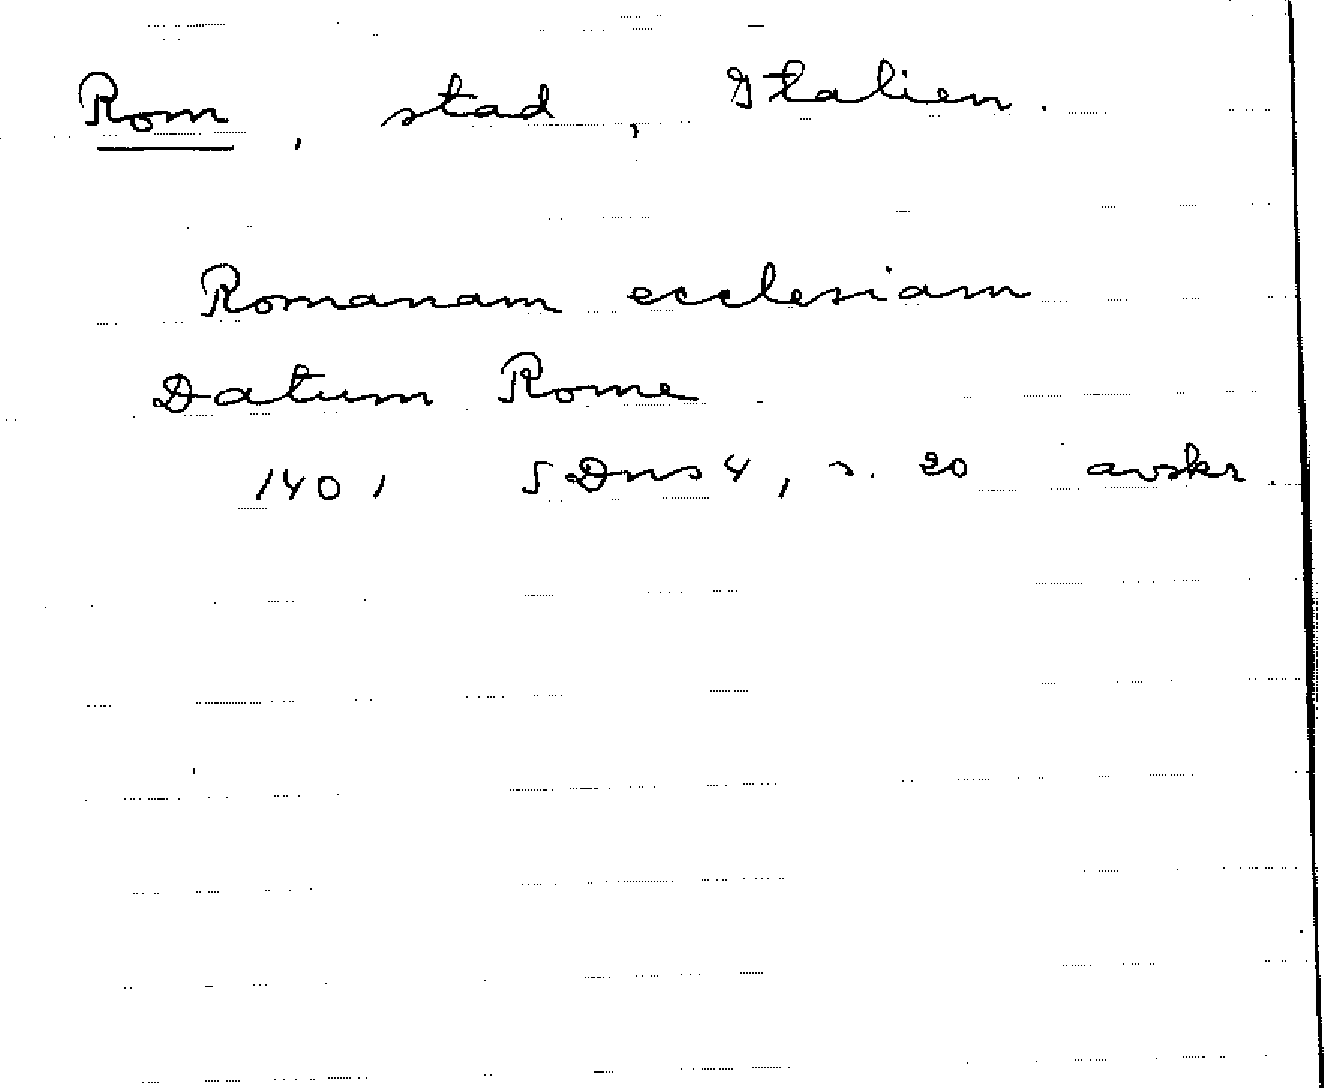 Rom, stad, Italien.
Romanam ecclesiam
Datum Rome
1401 SDns4, s. 20 avskr.